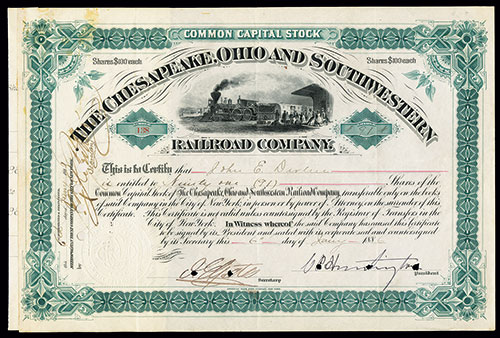 COMMON CAPITAL STOCK
Shares $100 each
Shares $100 each
THE CHESAPEAKE, OHIO AND SOUTHWESTERN
RAILROAD COMPANY.
This is to Certify that John E
is entitled to Ninety one (91) Shares of the
Common Capital Stock of The Chesapeake, Ohio and Southwestern Railroad Company, transferable only on the books
of said Company in the City of New York, in person or by power of Attorney, on the surrender of this
Certificate. This Certificate is not valid unless countersigned by the Registrar of Transfers in the
City of New York. In Witness whereof the said Company has caused this Certificate
to be signed by its President and sealed with its corporate seal and countersigned
by its Secretary this 6th day of 188
C.P. Huntington
Secretary
President